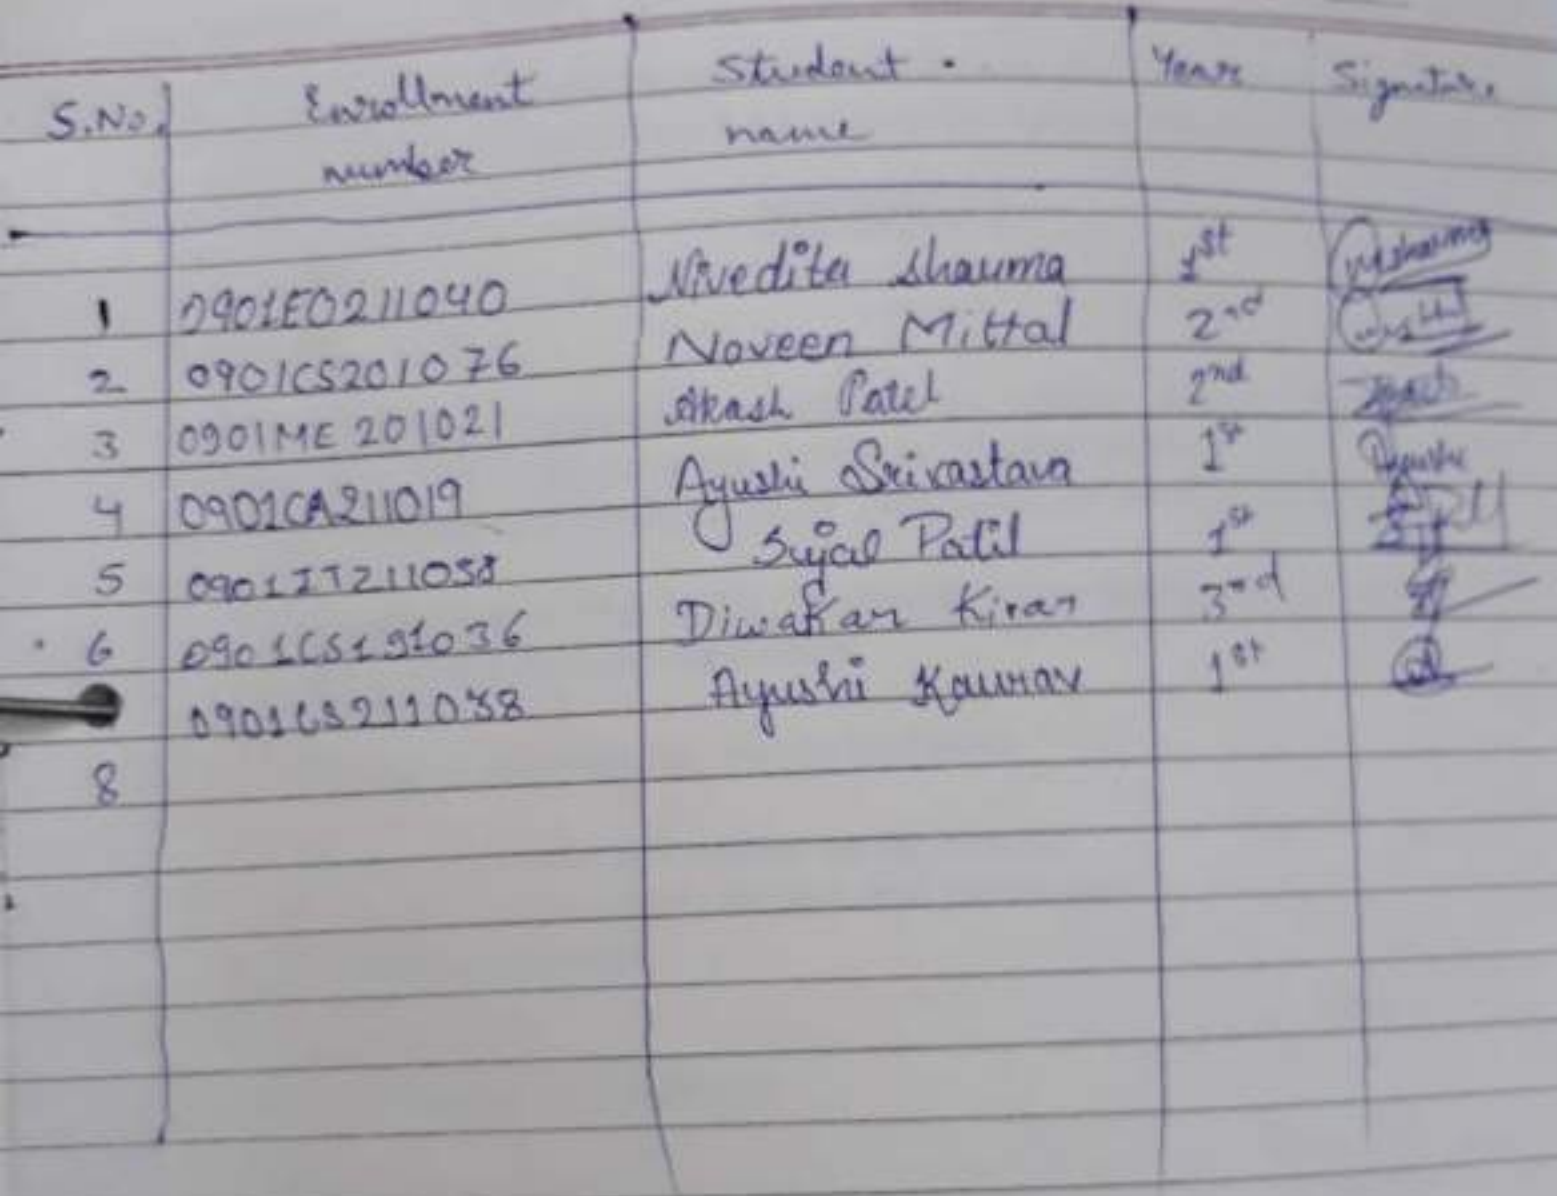 S.No. Enrollment number Student name Year Signature.
1 0901EO211040 Nivedita Sharma 1st
2 0901CS201076 Naveen Mittal 2nd
3 0901ME201021 Akash Patel 2nd
4 0901CA211019 Ayushi Srivastava 1st Ayushi
5 0901IT211058 Sujal Patil 1st
6 0901CS191036 Diwakar Kiran 3rd
0901CS211038 Ayushi Kaurav 1st
8